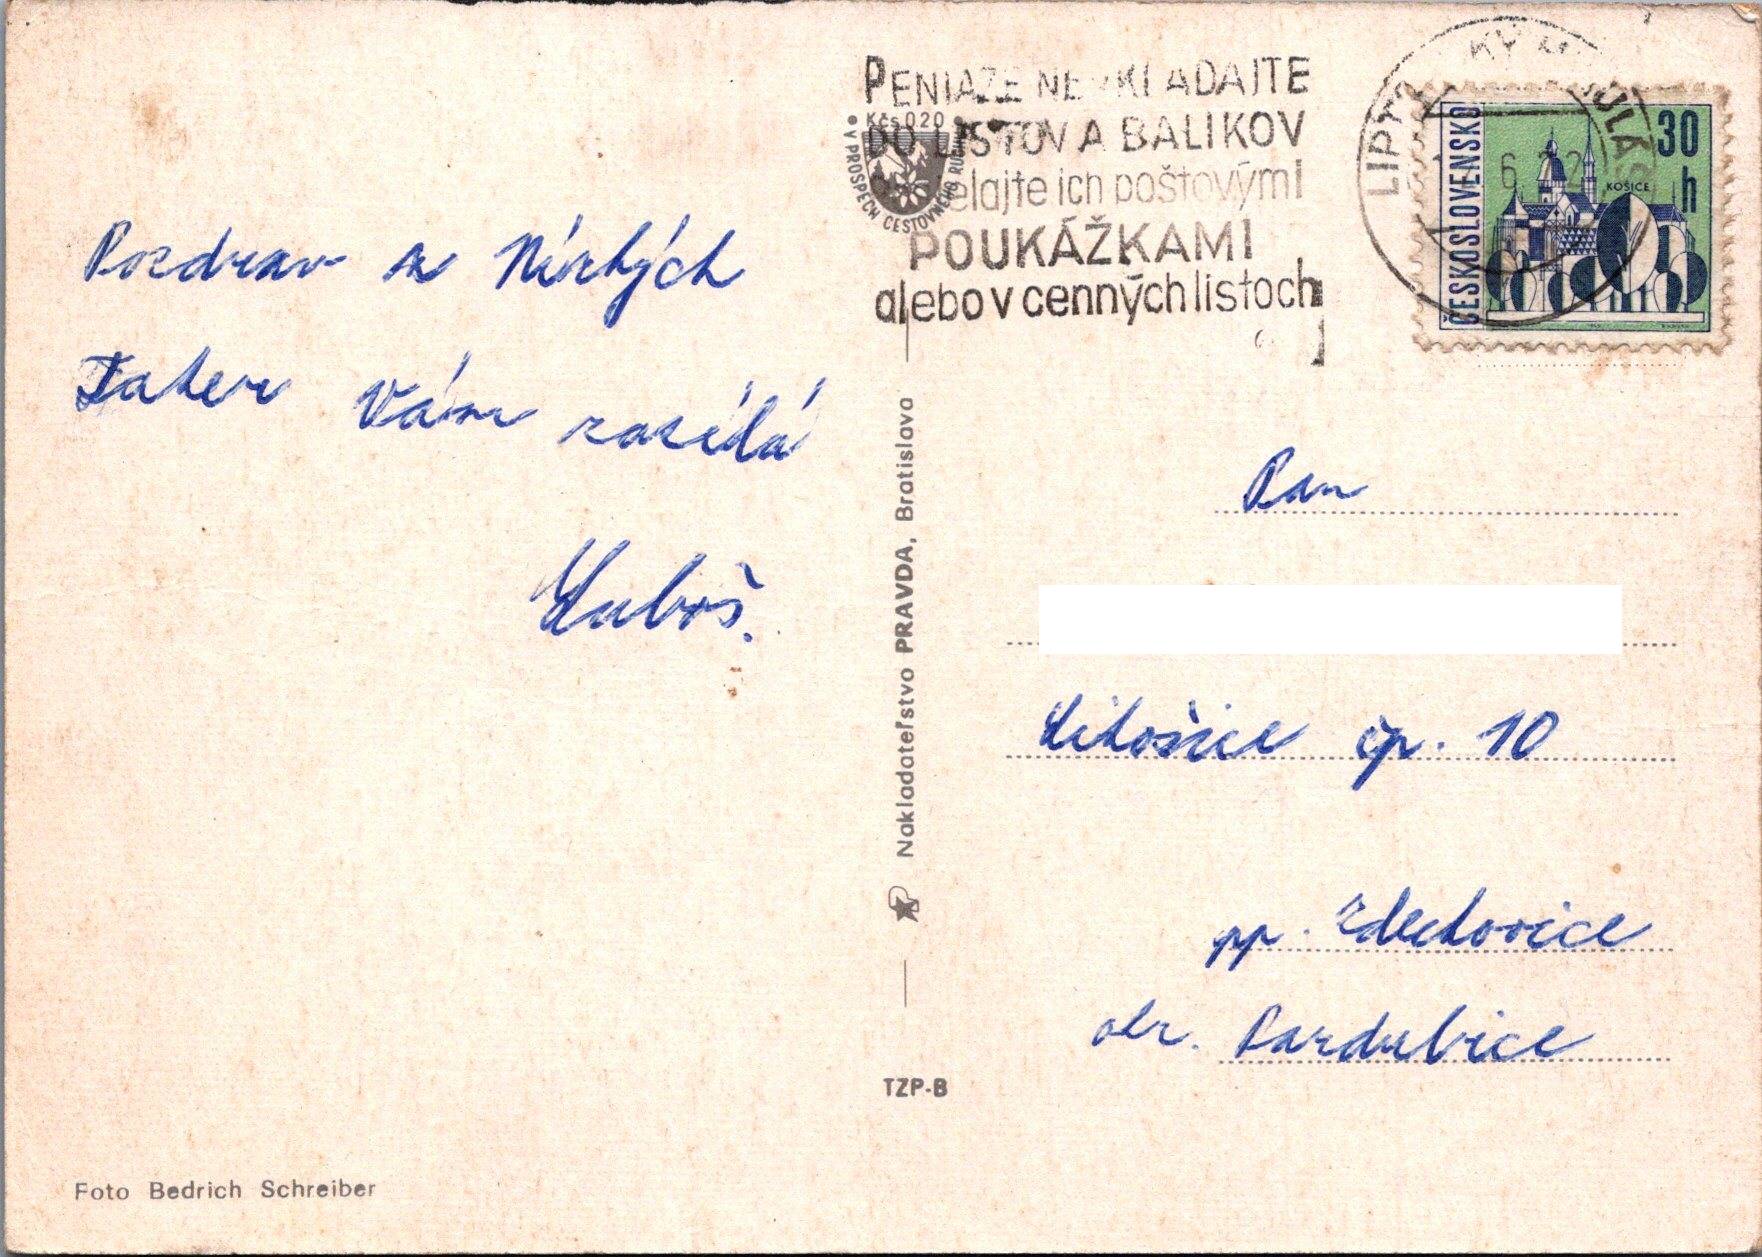 Pozdrav z Nízkých
Tater Vám zasílá
Luboš.
Foto Bedrich Schreiber
PENIAZE NEVKLADAJTE
DO LISTOV A BALIKOV
ich poštovými
POUKÁŽKAMI
alebo v cenných listoch
Kčs 0.20
V PROSPECH CESTOVNÉHO
ČESKOSLOVENSKO
30
h
KOŠICE
Nakladateľstvo PRAVDA, Bratislava
TZP-B
Pan
Litošice čp. 10
pp. Zdechovice
okr. Pardubice